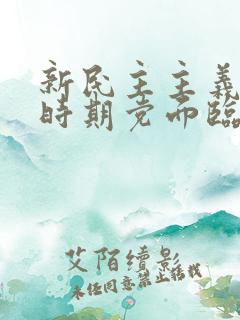 新民主主義
時期党面臨
艾陌續影
未经同意禁止转载